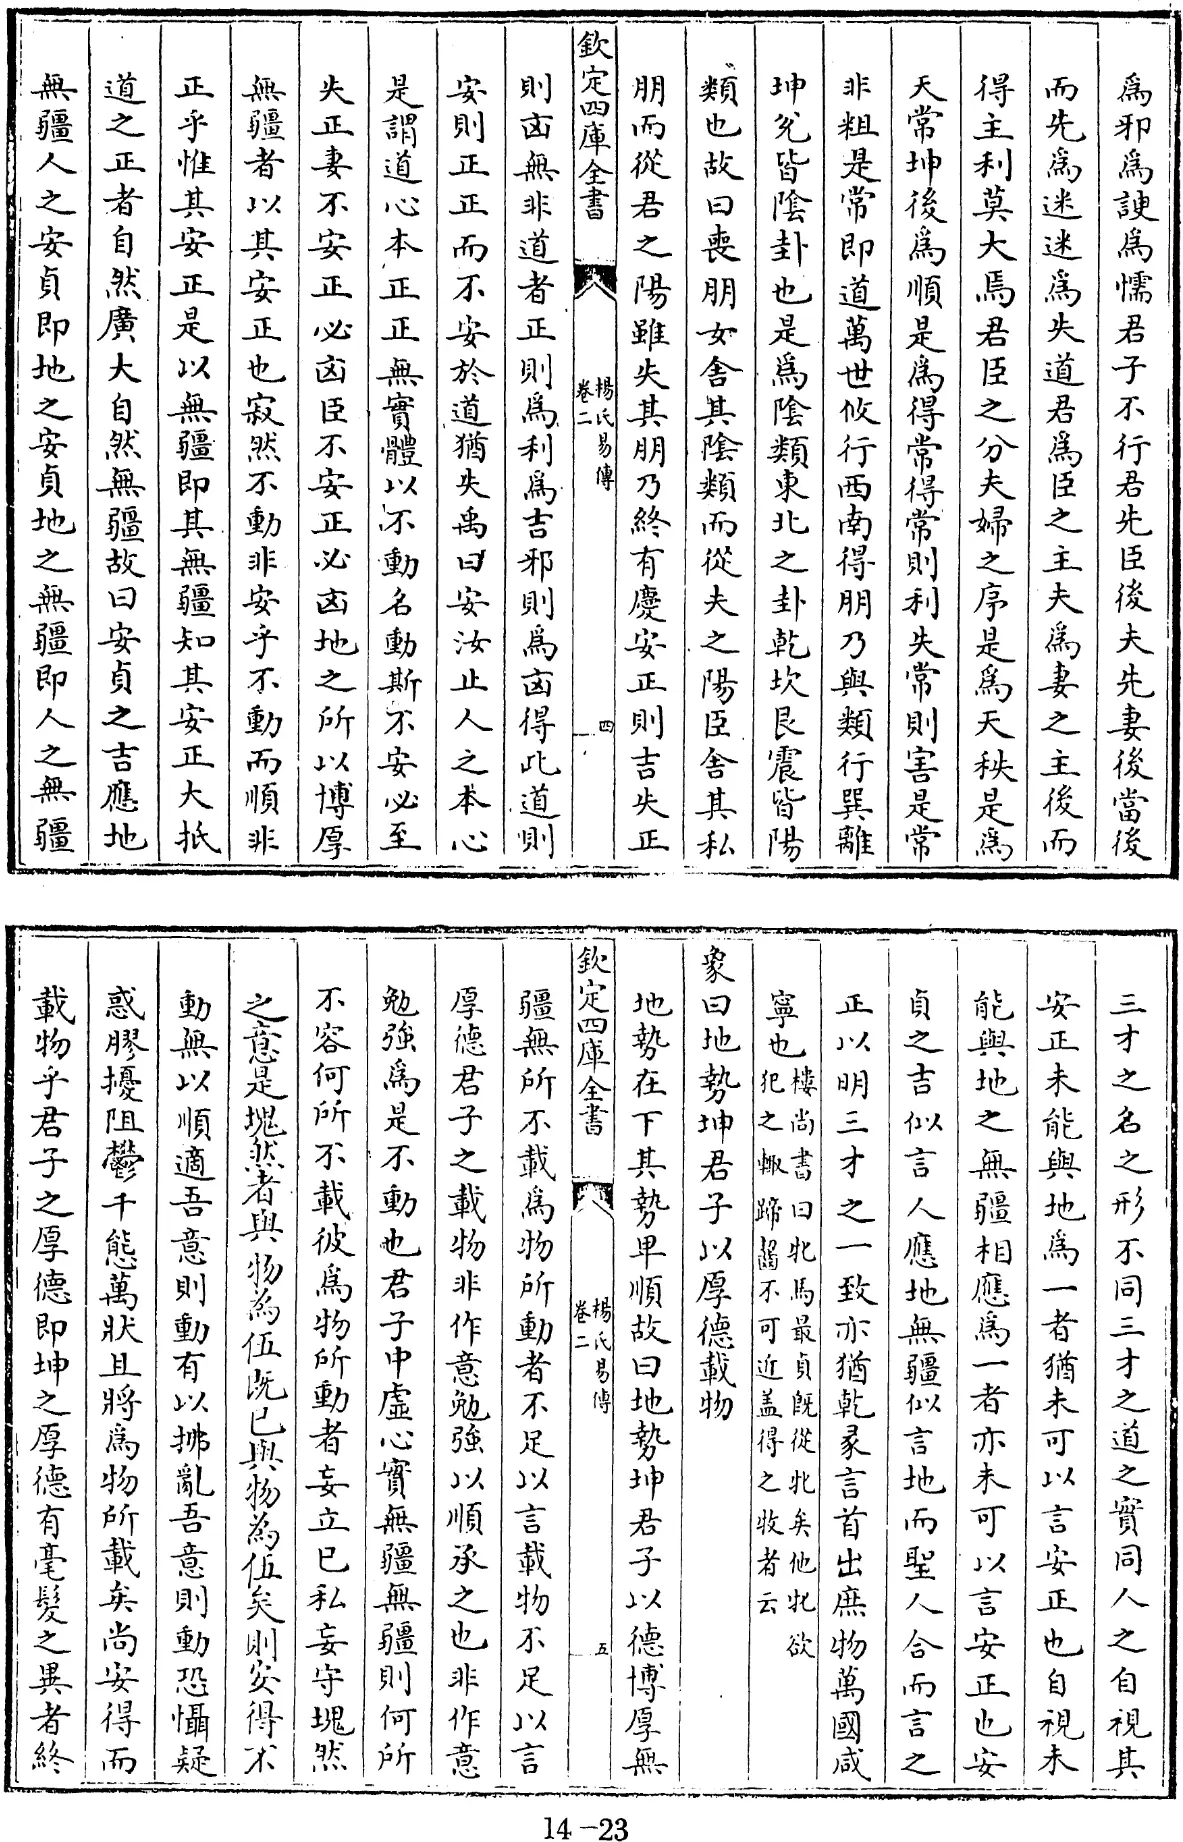 爲邪爲諛爲懦君子不行君先臣後夫先妻後當後
而先爲迷迷爲失道君爲臣之主夫爲妻之主後而
得主利莫大焉君臣之分夫婦之序是爲天秩是爲
天常坤後爲順是爲得常得常則利失常則害是常
非粗是常即道萬世攸行西南得朋乃與類行巽離
坤兌皆陰卦也是爲陰類東北之卦乾坎艮震皆陽
類也故曰喪朋女舍其陰類而從夫之陽臣舍其私
朋而從君之陽雖失其朋乃終有慶安正則吉失正
欽定四庫全書
楊氏易傳
卷二
四
則凶無非道者正則爲利爲吉邪則爲凶得此道則
安則正正而不安於道猶失禹曰安汝止人之本心
是謂道心本正正無實體以不動名動斯不安必至
失正妻不安正必凶臣不安正必凶地之所以博厚
無疆者以其安正也寂然不動非安乎不動而順非
正乎惟其安正是以無疆即其無疆知其安正大抵
道之正者自然廣大自然無疆故曰安貞之吉應地
無疆人之安貞即地之安貞地之無疆即人之無疆
三才之名之形不同三才之道之實同人之自視其
安正未能與地爲一者猶未可以言安正也自視未
能與地之無疆相應爲一者亦未可以言安正也安
貞之吉似言人應地無疆似言地而聖人合而言之
正以明三才之一致亦猶乾彖言首出庶物萬國咸
寧也樓尚書曰牝馬最貞既從牝矣他牝欲
犯之輙蹄齧不可近盖得之牧者云
象曰地勢坤君子以厚德載物
地勢在下其勢卑順故曰地勢坤君子以德博厚無
欽定四庫全書
楊氏易傳
卷二
五
疆無所不載爲物所動者不足以言載物不足以言
厚德君子之載物非作意勉強以順承之也非作意
勉強爲是不動也君子中虛心實無疆無疆則何所
不容何所不載彼爲物所動者妄立已私妄守塊然
之意是塊然者與物為伍既已與物為伍矣則安得不
動無以順適吾意則動有以拂亂吾意則動恐懾疑
惑膠擾阻鬱千態萬狀且將爲物所載矣尚安得而
載物乎君子之厚德即坤之厚德有毫髮之異者終
14-23